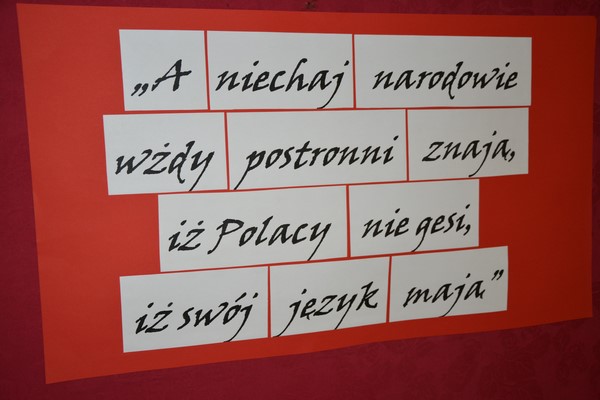 „A niechaj narodowie
wżdy postronni znają,
iż Polacy nie gesi,
iż swój język mają”